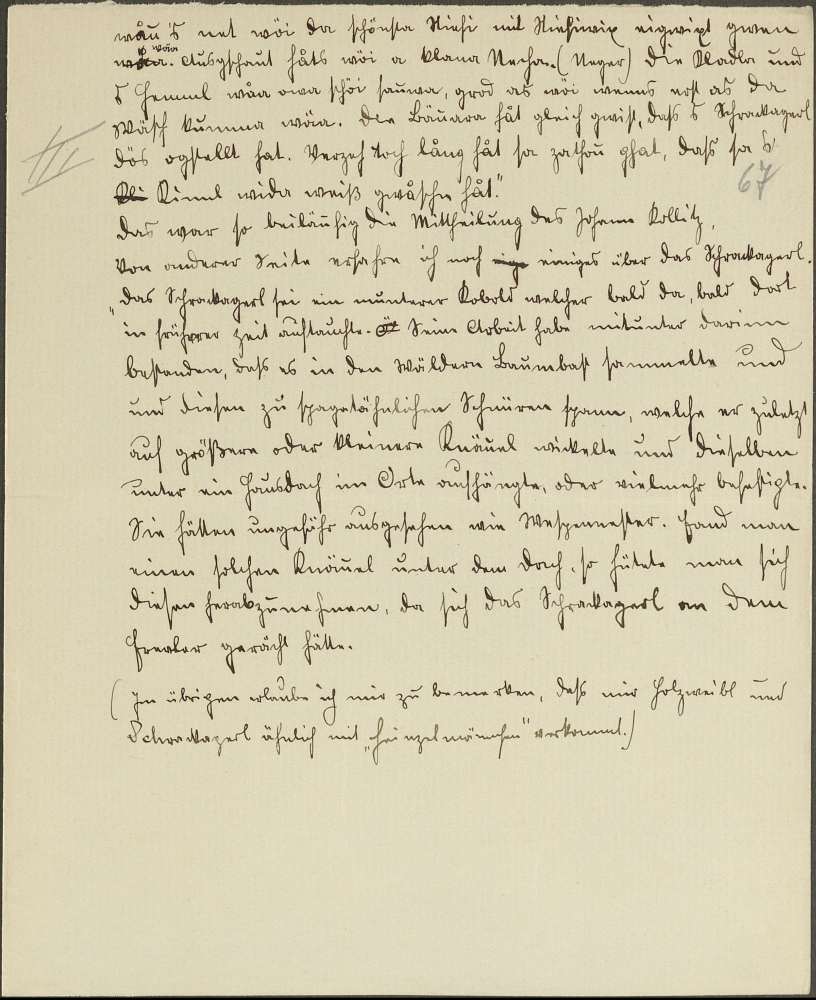 wåu 's net wöi da schönsta Stiefl mit Stieflwix eigwixt gwen
wöia. Ausgschaut håts wöi a klana Necha. (Neger) Die Kladla und
s Hemml wåa owa schöi sauwa, grod as wöi wenns erst as da
Wäsch kumma wöia. Die Bäuara håt gleich gwist, dass s Schrackagerl
dös ogstellt hat. Verzeh Toch lång håt sa zathou ghat, dass sa s'
Kinnl wida weiß gwåschn håt."
67
III
Das war so beiläufig die Mittheilung des Johann Kollitz,
Von anderer Seite erfahre ich noch einiges über das Schrackagerl.
„Das Schrackagerl sei ein munterer Kobold welcher bald da, bald dort
in früherer Zeit auftauchte. Seine Arbeit habe mitunter darinn
bestanden, dass es in den Wäldern Baumbast sammelte und
und diesen zu spagatähnlichen Schnüren spann, welche er zuletzt
auf größere oder kleinere Knäuel wickelte und dieselben
unter ein Hausdach im Orte aufhängte, oder vielmehr befestigte.
Sie hätten ungefähr ausgesehen wie Wespennester. Fand man
einen solchen Knäuel unter dem Dach, so hütete man sich
diesen herabzunehmen, da sich das Schrackagerl an dem
Frevler gerächt hätte.
(Im übrigen erlaube ich mir zu bemerken, dass mir Holzweibl und
Schrackagerl ähnlich mit „Heinzelmännchen" vorkommt.)